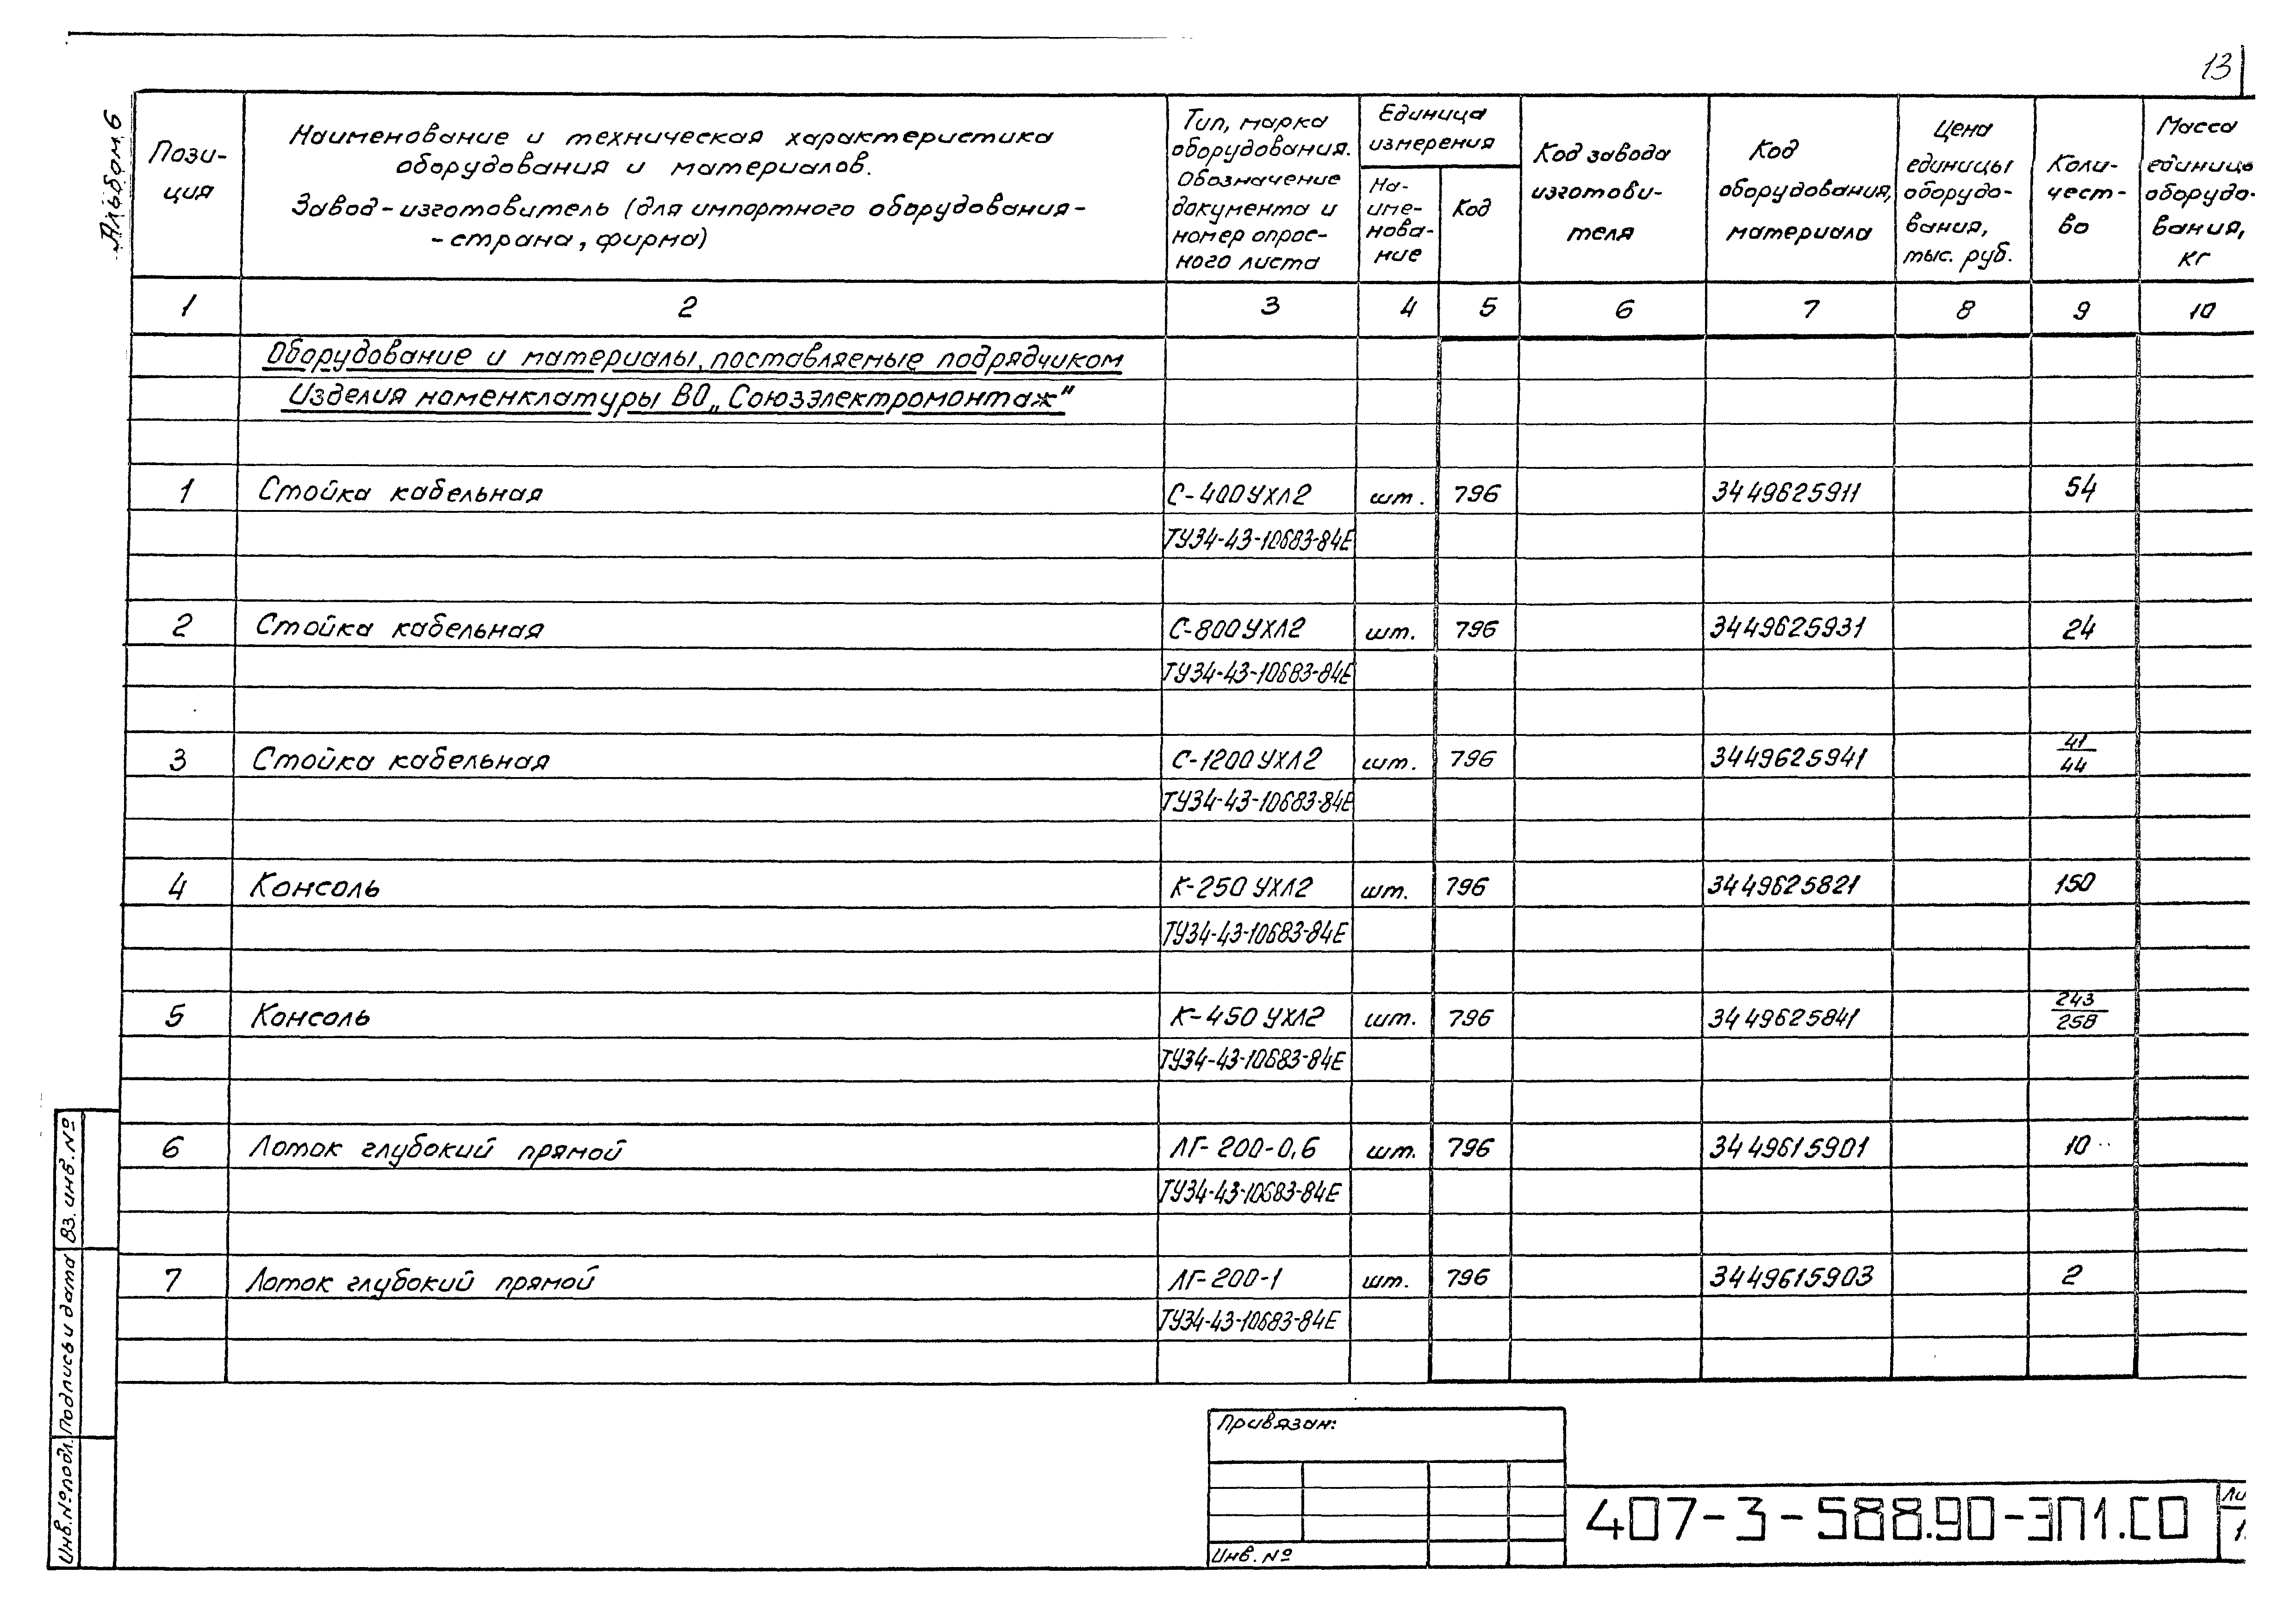 13
Альбом 6
Пози-
ция
Наименование и техническая характеристика
оборудования и материалов.
Завод-изготовитель (для импортного оборудования-
-страна, фирма)
Тип, марка
оборудования.
Обозначение
документа и
номер опрос-
ного листа
Единица
измерения
На-
име-
нова-
ние
Код
Код завода
изготови-
теля
Код
оборудования,
материала
Цена
единицы
оборудо-
вания,
тыс. руб.
Коли-
чест-
во
Масса
единицы
оборудо-
вания,
кг
1 2 3 4 5 6 7 8 9 10
Оборудование и материалы, поставляемые подрядчиком
Изделия номенклатуры ВО „Союзэлектромонтаж"
1 Стойка кабельная С-400УХЛ2 шт. 796 3449625911 54
ТУ34-43-10683-84Е
2 Стойка кабельная С-800УХЛ2 шт. 796 3449625931 24
ТУ34-43-10683-84Е
3 Стойка кабельная С-1200УХЛ2 шт. 796 3449625941 41/44
ТУ34-43-10683-84Е
4 Консоль К-250УХЛ2 шт. 796 3449625821 150
ТУ34-43-10683-84Е
5 Консоль К-450УХЛ2 шт. 796 3449625841 243/258
ТУ34-43-10683-84Е
6 Лоток глубокий прямой ЛГ-200-0,6 шт. 796 3449615901 10
ТУ34-43-10683-84Е
7 Лоток глубокий прямой ЛГ-200-1 шт. 796 3449615903 2
ТУ34-43-10683-84Е
Вз. инв. №
Подпись и дата
Инв. № подл.
Привязан:
Инв. №
407-3-588.90-ЭП1.СО